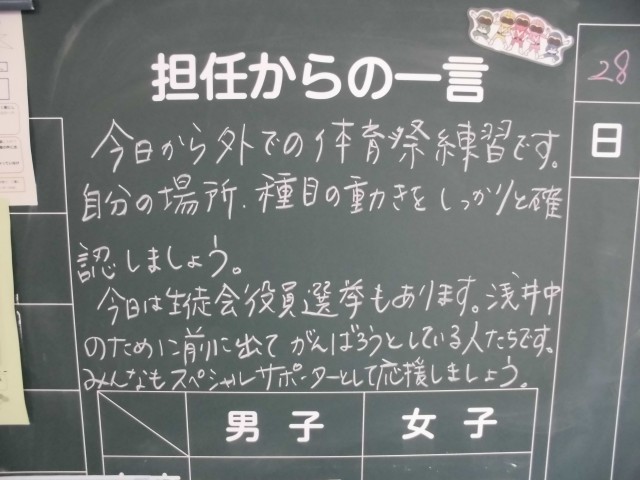 担任からの一言
28
日
今日から外での体育祭練習です。
自分の場所、種目の動きをしっかりと確
認しましょう。
今日は生徒会役員選挙もあります。浅井中
のために前に出てがんばろうとしている人たちです。
みんなもスペシャルサポーターとして応援しましょう。
男子
女子